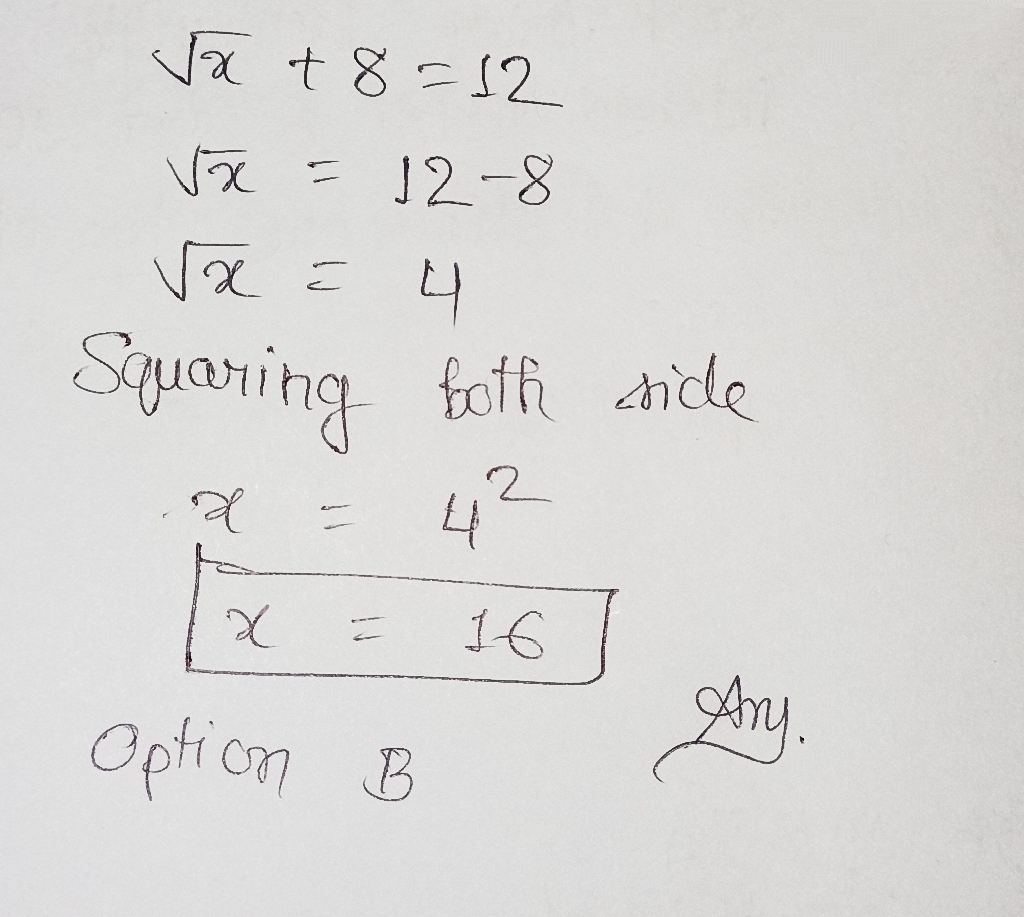 √x + 8 = 12
√x = 12 - 8
√x = 4
Squaring both side
x = 4²
x = 16
Ans.
Option B